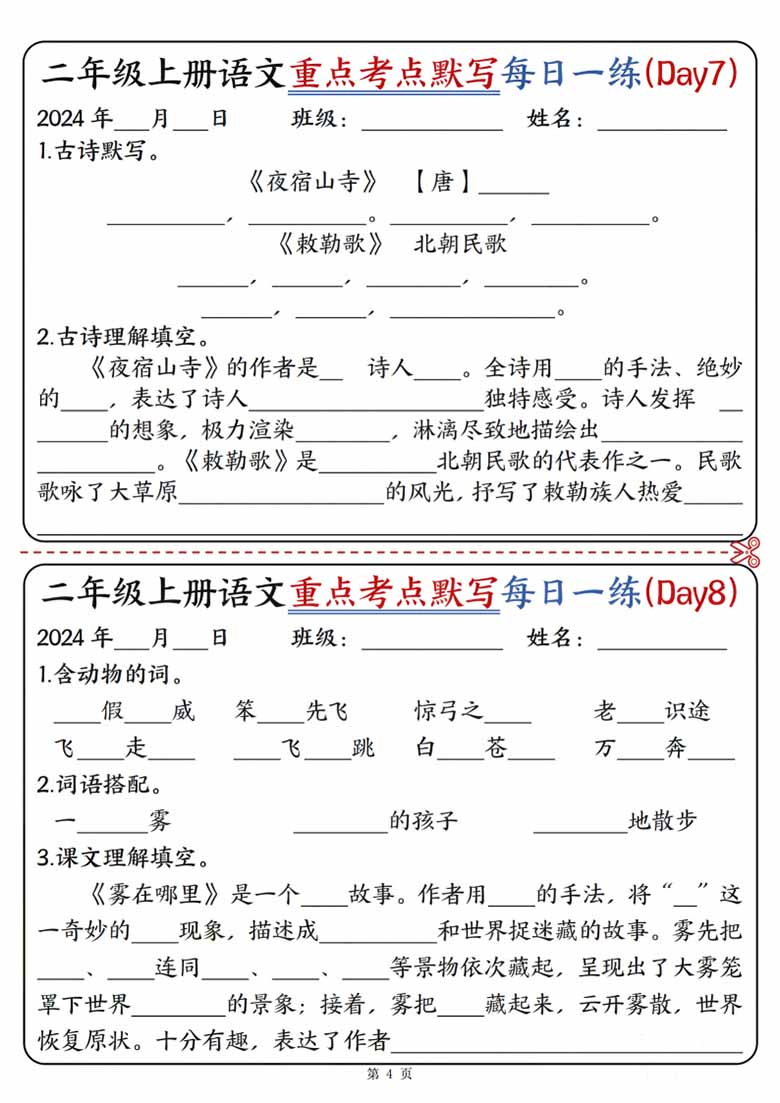 二年级上册语文重点考点默写每日一练(Day7)
2024年___月___日 班级：____________ 姓名：___________
1.古诗默写。
《夜宿山寺》 【唐】______
__________，__________。__________，__________。
《敕勒歌》 北朝民歌
______，______，________，________。
______，______，______________。
2.古诗理解填空。
《夜宿山寺》的作者是__ 诗人____。全诗用____的手法、绝妙
的____，表达了诗人____________________独特感受。诗人发挥 __
______的想象，极力渲染________，淋漓尽致地描绘出____________
__________。《敕勒歌》是__________北朝民歌的代表作之一。民歌
歌咏了大草原__________________的风光，抒写了敕勒族人热爱_____
____________________________________________________________
二年级上册语文重点考点默写每日一练(Day8)
2024年___月___日 班级：____________ 姓名：___________
1.含动物的词。
____假____威 笨____先飞 惊弓之____ 老____识途
飞____走____ ____飞____跳 白____苍____ 万____奔____
2.词语搭配。
一______雾 ________的孩子 ________地散步
3.课文理解填空。
《雾在哪里》是一个____故事。作者用____的手法，将“__”这
一奇妙的____现象，描述成__________和世界捉迷藏的故事。雾先把
____、____连同____、____、____等景物依次藏起，呈现出了大雾笼
罩下世界________的景象；接着，雾把____藏起来，云开雾散，世界
恢复原状。十分有趣，表达了作者______________________________
第 4 页